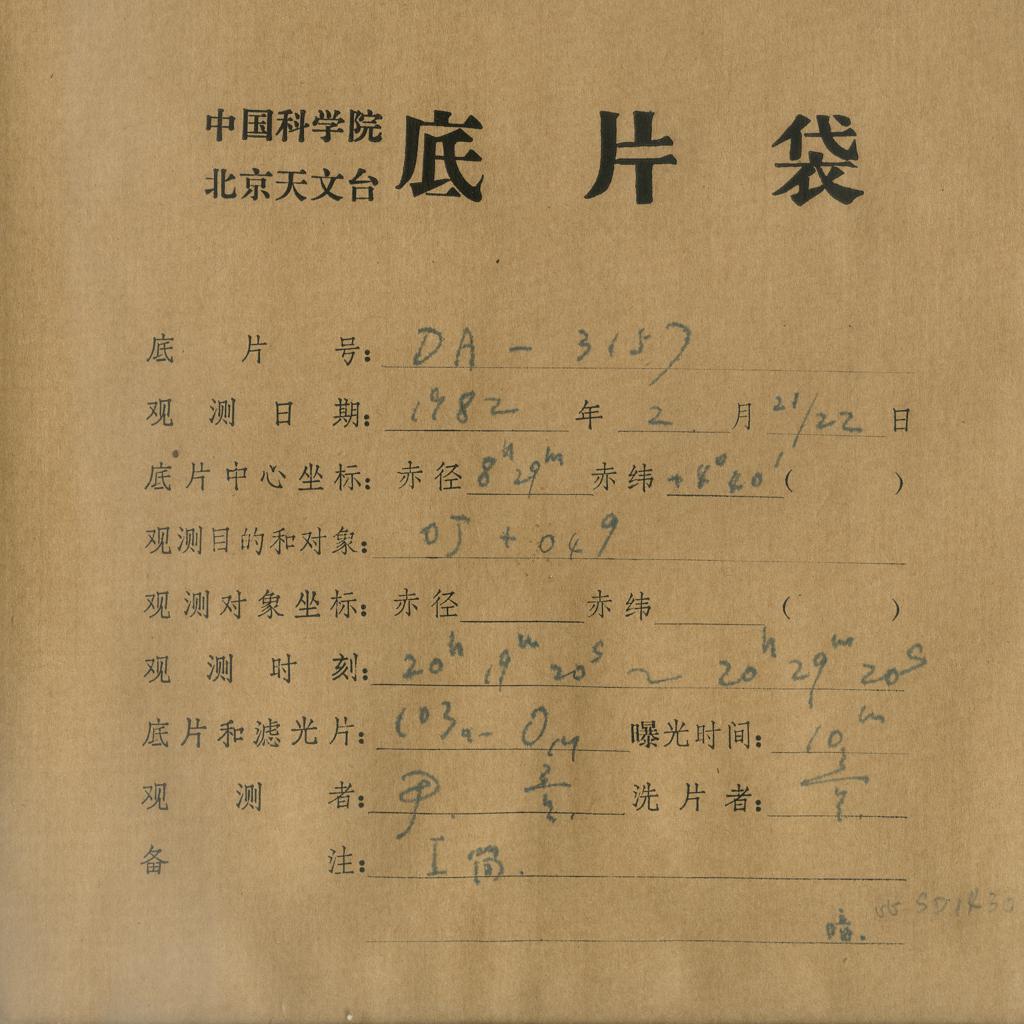 中国科学院
北京天文台
底片袋
底片号：DA - 3157
观测日期：1982年2月21/22日
底片中心坐标：赤径8h29m赤纬+4°40′(  )
观测目的和对象：OJ + 049
观测对象坐标：赤径 赤纬 (  )
观测时刻：20h 19m 20s ~ 20h 29m 20s
底片和滤光片：103a-O 曝光时间：10m
观测者：尹 洗片者：
备注：I 简.
暗.